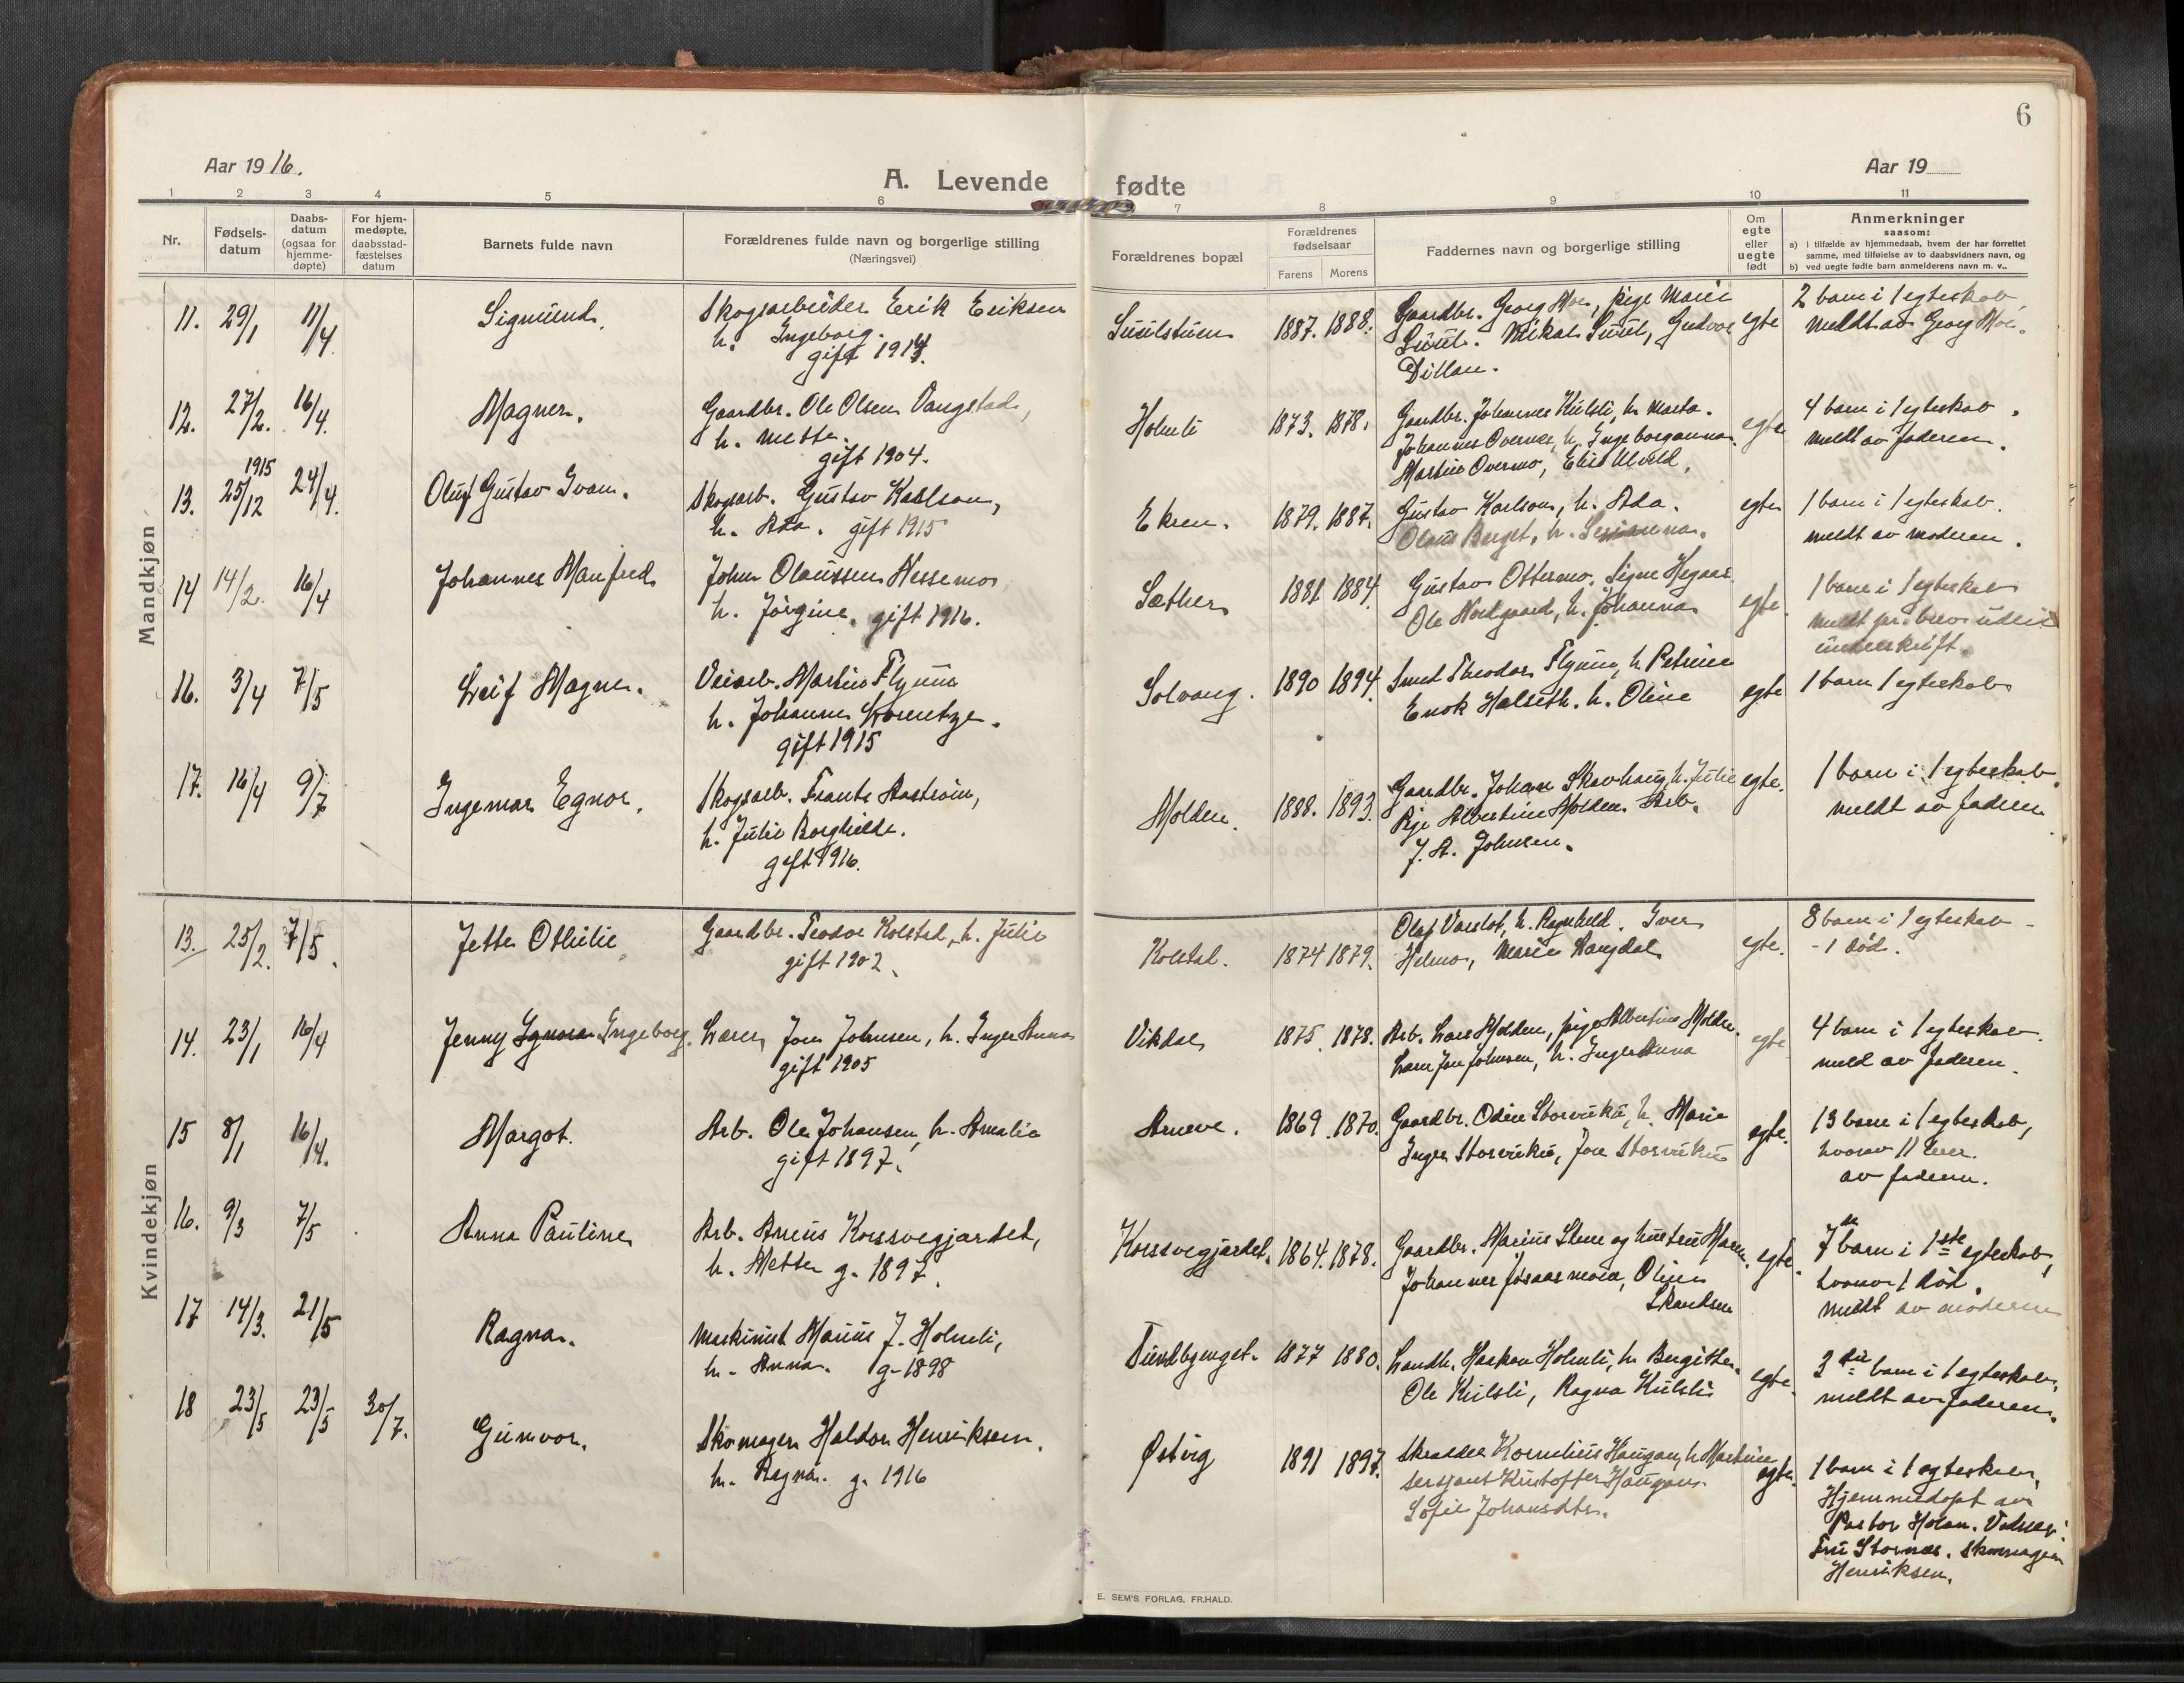 6
Aar 1916.
Aar 19
A. Levende fødte
1 2 3 4 5 6 7 8 9 10 11
Nr.
Fødsels-
datum
Daabs-
datum
(ogsaa for
hjemme-
døpte)
For hjem-
medøpte,
daabsstad-
fæstelses
datum
Barnets fulde navn
Forældrenes fulde navn og borgerlige stilling
(Næringsvei)
Forældrenes bopæl
Forældrenes
fødselsaar
Farens Morens
Faddernes navn og borgerlige stilling
Om
egte
eller
uegte
født
Anmerkninger
saasom:
a) i tilfælde av hjemmedaab, hvem der har forrettet
samme, med tilføielse av to daabsvidners navn, og
b) ved uegte fødte barn anmelderens navn m. v..
Mandkjøn
11. 29/1 11/4 Sigmund. Skogsarbeider Erik Eriksen
h. Ingeborg.
gift 1914.
1887. 1888. Gaardbr. Georg Moe, pige Marie
egte
Dillan.
2 barn i 1 egteskab
meldt av Georg Moe.
12. 27/2. 16/4. Magner. Gaardbr. Ole Olsen Vangstad,
h. Mette.
gift 1904.
Holmli 1873. 1878. Gaardbr. Johannes Kulsli, h. Marta.
Johannes Overmo, h. Ingeborganna.
Martin Overmo,
egte
4 barn i 1 egteskab.
meldt av faderen.
13. 1915 25/12 24/4. Oluf Gustav Ivan. Skogsarb. Gustav Karlson,
h. Ada. gift 1915
Ekren. 1879. 1887. Gustav Karlson, h. Ada.
Olaus Berget, h.
egte
1 barn i 1 egteskab.
meldt av moderen.
14 14/2. 16/4 Johannes Manfred John Olaussen Nessemo
h. Jørgine. gift 1916.
Sæther 1881 1884. Gustav Ottermo, Signe
Ole Nordgaard, h. Johanna
egte.
1 barn i 1 egteskab
meldt pr. brev uden
underskrift.
16. 3/4 7/5 Leif Magne. Veiarb. Martin Flynna
h. Johanna Lorentze.
gift 1915
Solvang. 1890 1894. Smed Theodor Flynna, h. Petrine
Enok Halseth. h. Oline
egte
1 barn 1 egteskab
17. 16/4 9/7 Ingemar Egnor. Skogsarb. Frants Aastrøm,
h. Julie Borghilde.
gift 1916.
Molden. 1888. 1893. Gaardbr. Johan Skavhaug, h. Julie
Pige Albertine Molden. Arb.
J. A. Johnsen.
egte.
1 barn i 1 egteskab.
meldt av faderen
Kvindekjøn
13. 25/2. 7/5. Jette Othilie Gaardbr. Teodor Kolstad, h. Julie
gift 1902.
Kolstad. 1874 1879. Olaf Varslot, h. Ragnhild. Iver
Helmo, Marie Langdal
egte.
8 barn i 1 egteskab -
- 1 død.
14. 23/1 16/4 Jenny Ignora Ingeborg. Lærer Jon Johnsen, h. Inger Anna
gift 1905
Vikdal 1875. 1878. Arb. Lars Molden, pige Albertine Molden.
Lærer Jon Johnsen, h. Inger Anna
egte
4 barn i 1 egteskab.
meld av faderen.
15 8/1 16/4. Margot. Arb. Ole Johansen, h. Amalie
gift 1897.
Arneve. 1869. 1870. Gaardbr. Odin Storvuku, h. Marie
Inger Storvuku, Jon Storvuku
egte.
13 barn i 1 egteskab,
hvorav 11 lever.
av faderen.
16. 9/3 7/5 Anna Pauline Arb. Anéus Korssvegjardet,
h. Mette g. 1897.
Korssvegjardet. 1864. 1878. Gaardbr. Marius Stene og hustru Maren.
Johannes
egte.
7de barn i 1ste egteskab,
hvorav 1 død.
meldt av moderen
17 14/3. 21/5 Ragna. Maskinist Marius J. Holmli,
h. Anna. g. 1898
1877 1880. Landh. Haakon Holmli, h. Bergitte.
Ole Kulsli, Ragna Kulsli
egte.
3die barn i 1 egteskab,
meldt av faderen.
18 23/5 23/5 30/7. Gunvor. Skomager Haldor Henriksen.
h. Ragna. g. 1916
Østvig 1891 1897. Skrædder Kornelius Haugan, h. Martine
Sersjant Kristoffer Haugan.
Sofie Johansdtr.
egte.
1 barn i 1 egteskab,
Hjemmedøpt av
Pastor Holan. Vidner:
Fru Stornæs. Skomager
Henriksen.
E. SEM'S FORLAG, FR.HALD.